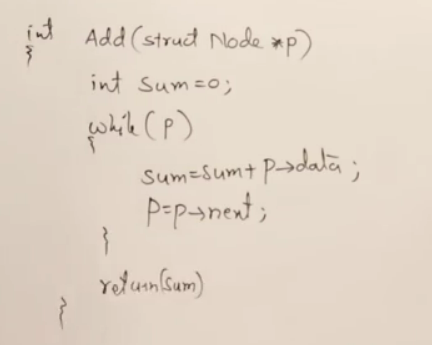 int Add(struct Node *p)
{
int sum=0;
while(P)
{
sum=sum+P→data;
P=p→next;
}
return(sum)
}